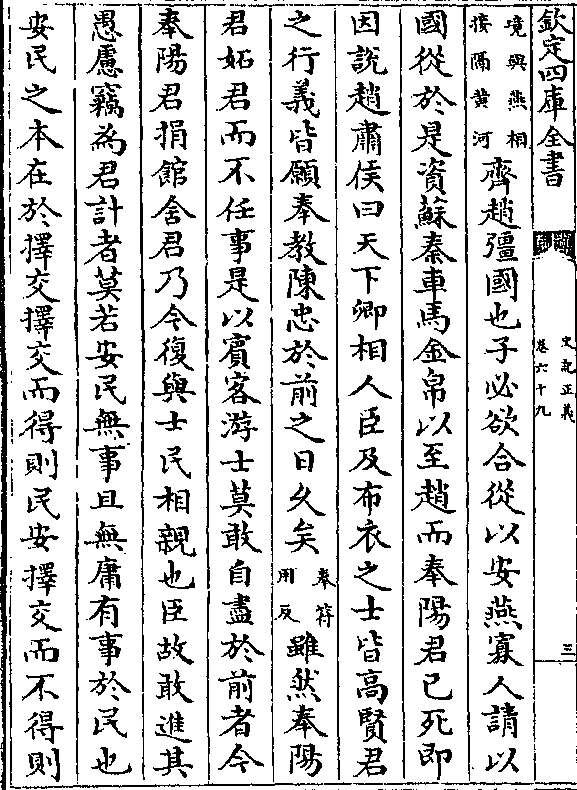 欽定四庫全書
史記正義
卷六十九
三
境興燕相
接隔黃河
齊趙彊國也子必欲合從以安燕寡人請以
國從於是資蘇秦車馬金帛以至趙而奉陽君已死即
因說趙肅侯曰天下卿相人臣及布衣之士皆高賢君
之行義皆願奉教陳忠於前之日久矣
奉符
用反
雖然奉陽
君妬君而不任事是以賓客游士莫敢自盡於前者今
奉陽君捐館舍君乃今復與士民相親也臣故敢進其
愚慮竊為君計者莫若安民無事且無庸有事於民也
安民之本在於擇交擇交而得則民安擇交而不得則